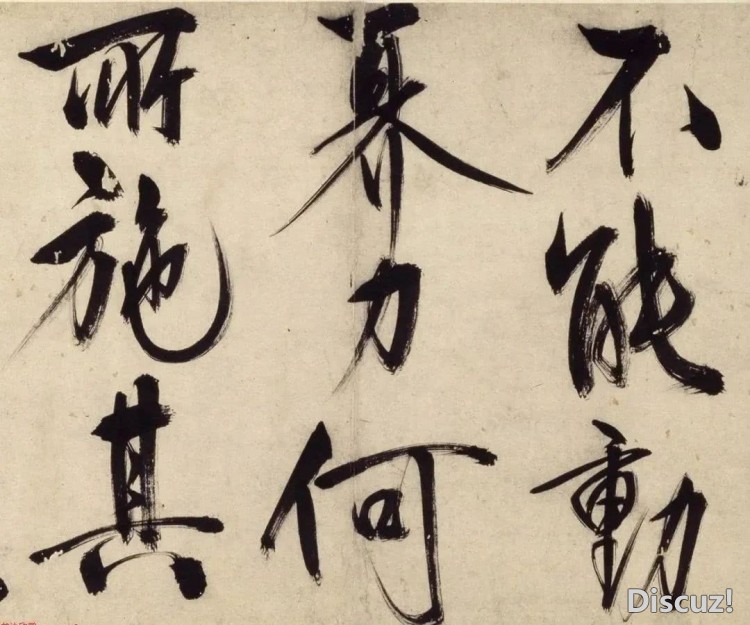 不能動
奡力何
所施其
Discuz!